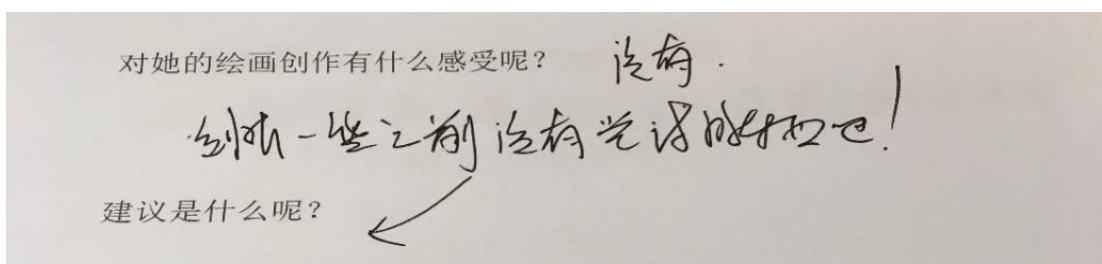 对她的绘画创作有什么感受呢? 没有.
一些之前没有尝试的东西也!
建议是什么呢?